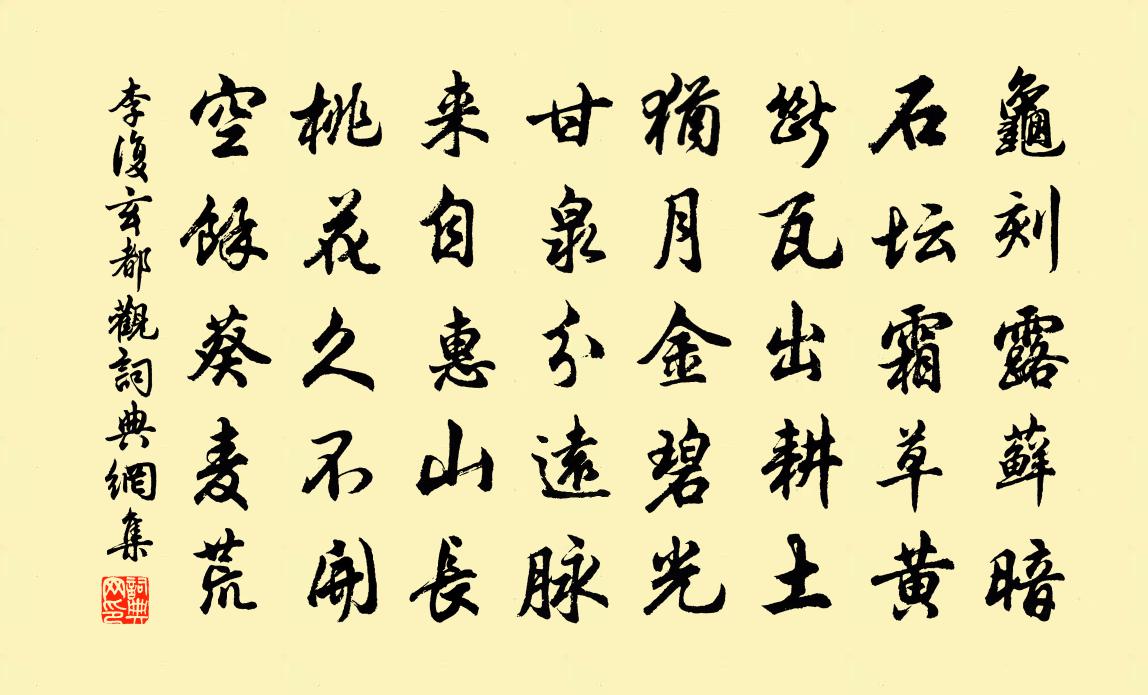 龜刻露蘚暗
石坛霜草黄
斷瓦出耕土
猶月金碧光
甘泉分遠脉
来自惠山長
桃花久不開
空餘葵麦荒
李復玄都觀詞典網集
詞典網印